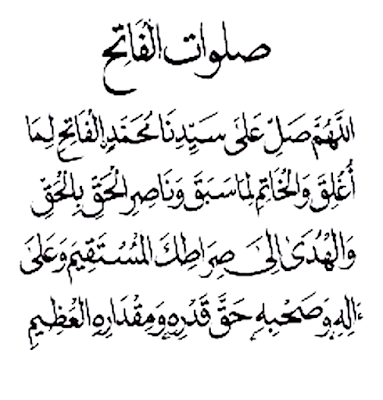 صلوات الفاتح
اللَّهُمَّ صَلِّ عَلَى سَيِّدِنَا مُحَمَّدٍ الْفَاتِحِ لِمَا
أُغْلِقَ وَالْخَاتِمِ لِمَا سَبَقَ وَنَاصِرِ الْحَقِّ بِالْحَقِّ
وَالْهُدَىٰ إِلَى صِرَاطِكَ الْمُسْتَقِيمِ وَعَلَى
اٰلِهِ وَصَحْبِهِ حَقَّ قَدْرِهِ وَمِقْدَارِهِ الْعَظِيمِ